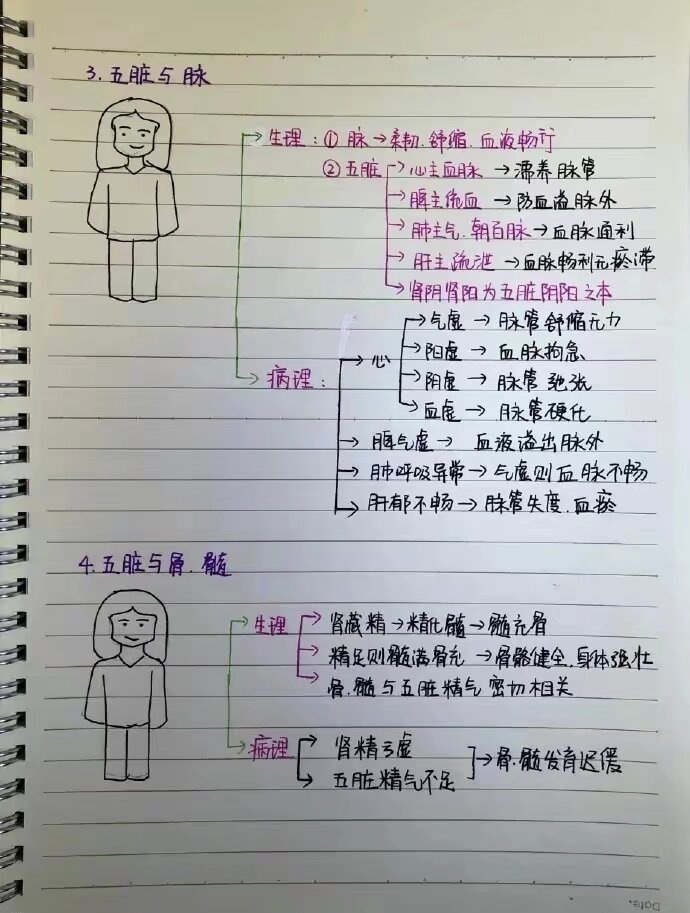 3.五脏与脉
生理:①脉→柔韧.舒缩.血液畅行
②五脏→心主血脉→濡养脉管
→脾主统血→防血溢脉外
→肺主气.朝百脉→血脉通利
→肝主疏泄→血脉畅利无瘀滞
→肾阴肾阳为五脏阴阳之本
→气虚→脉管舒缩无力
病理:→心→阳虚→血脉拘急
→阴虚→脉管弛张
→血虚→脉管硬化
→脾气虚→血液溢出脉外
→肺呼吸异常→气虚则血脉不畅
→肝郁不畅→脉管失度.血瘀
4.五脏与骨.髓
生理→肾藏精→精化髓→髓充骨
→精足则髓满骨充→骨骼健全.身体强壮
→骨.髓与五脏精气密切相关
病理→肾精亏虚
→五脏精气不足→骨.髓发育迟缓
Date.